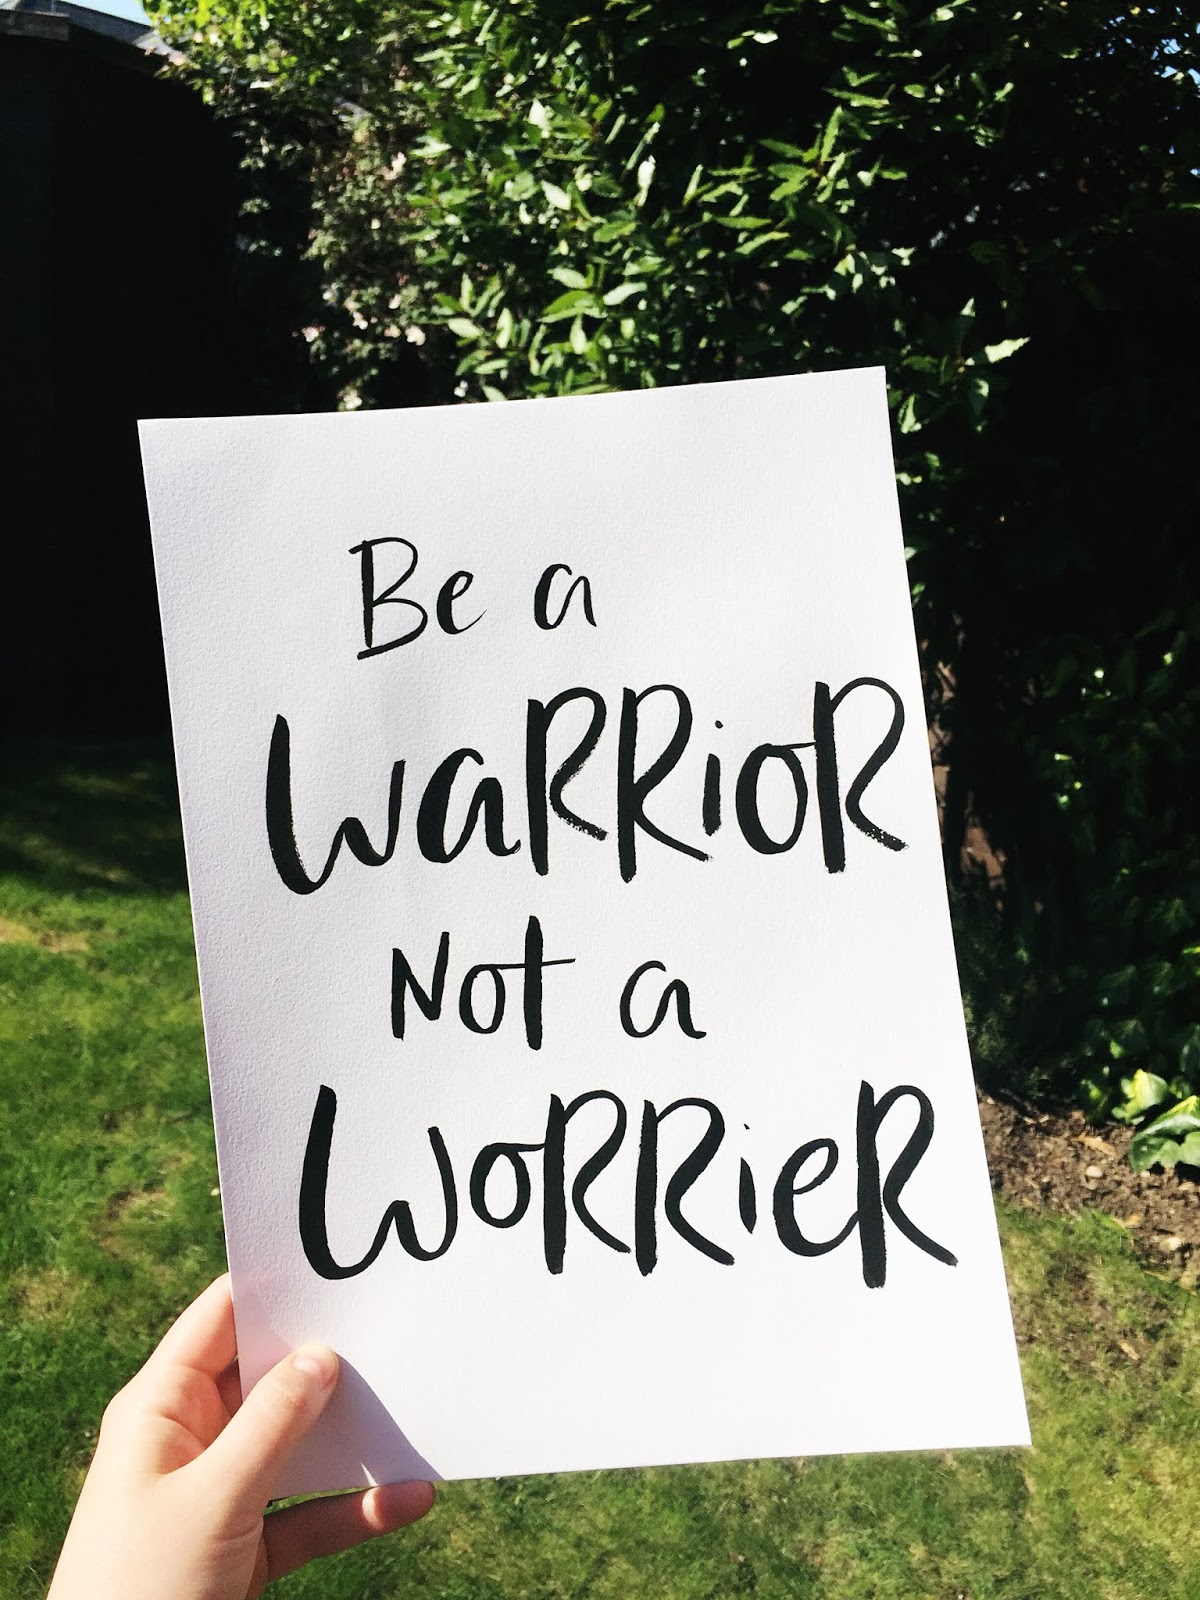 Be a
WaRRioR
Not a
WoRRieR